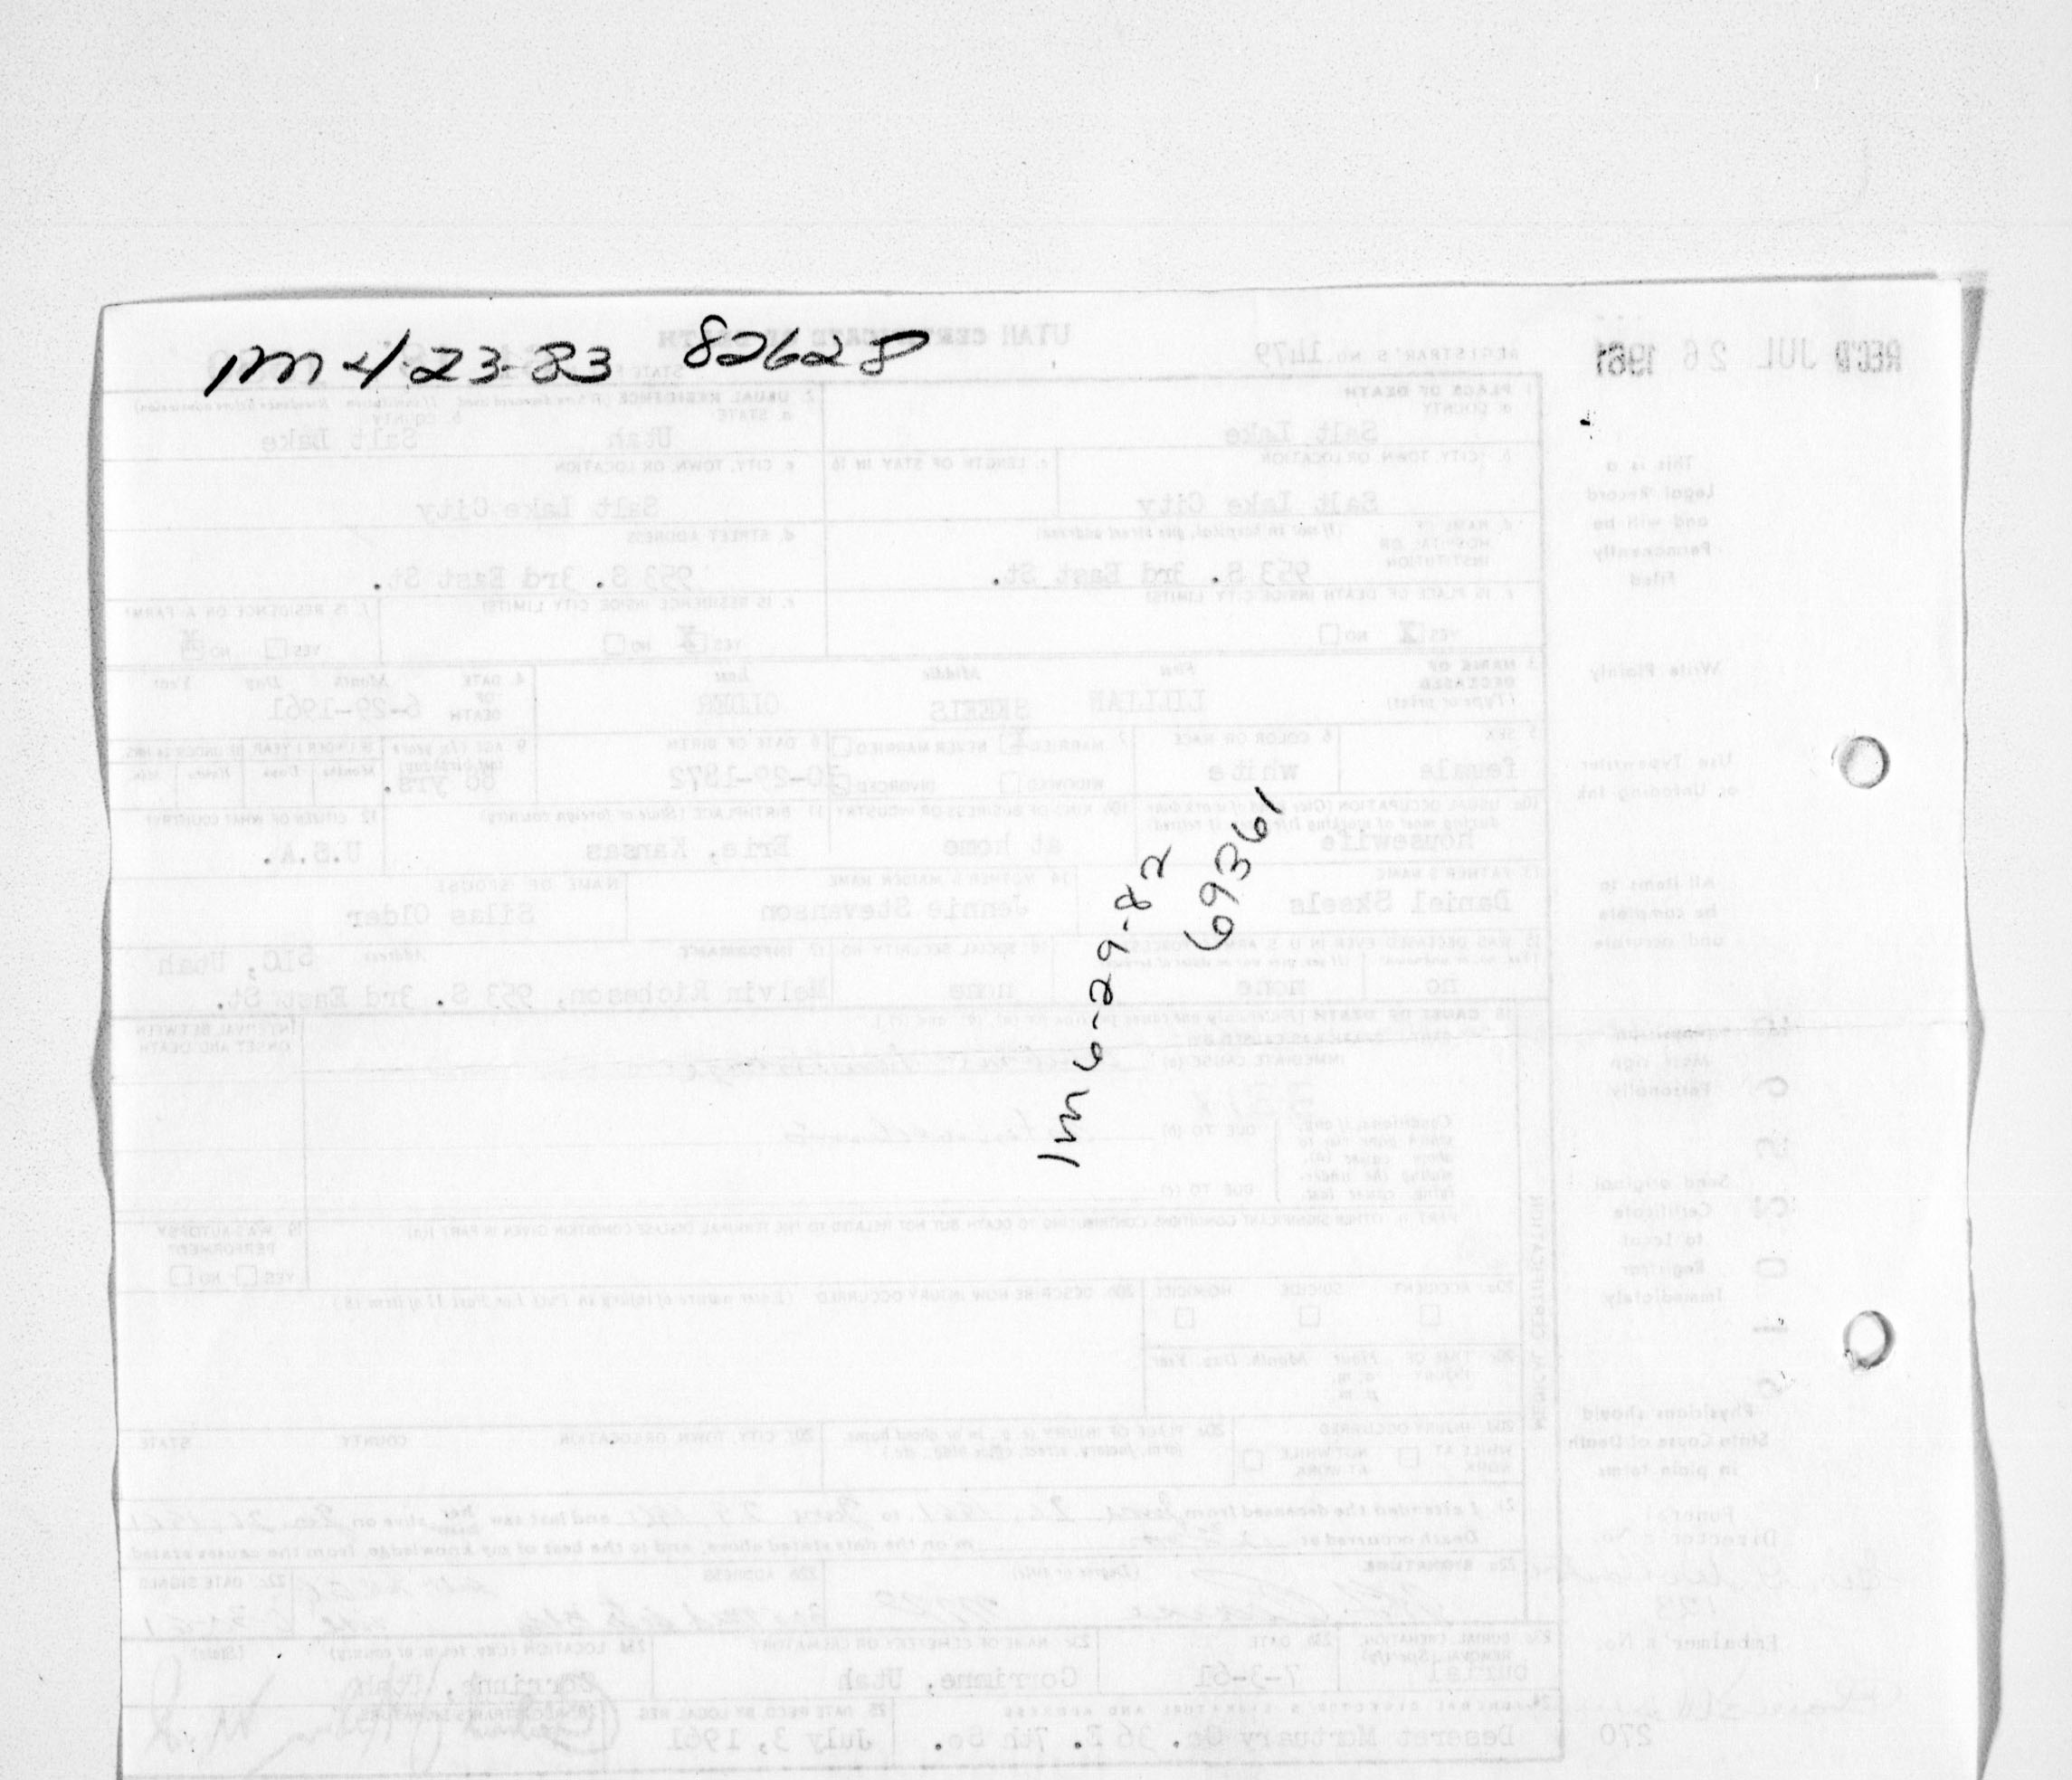 1m 4-23-83 82628
REC'D JUL 26 1961
UTAH CERTIFICATE OF DEATH
REGISTRAR'S NO. 1479
1. PLACE OF DEATH
a. COUNTY
Salt Lake
2. USUAL RESIDENCE
a. STATE
Utah
b. COUNTY
Salt Lake
b. CITY, TOWN OR LOCATION
Salt Lake City
c. LENGTH OF STAY IN 1b
c. CITY, TOWN, OR LOCATION
Salt Lake City
d. NAME OF HOSPITAL OR INSTITUTION (If not in hospital, give street address)
953 S. 3rd East St.
d. STREET ADDRESS
953 S. 3rd East St.
e. IS PLACE OF DEATH INSIDE CITY LIMITS?
YES X NO
e. IS RESIDENCE INSIDE CITY LIMITS?
YES X NO
f. IS RESIDENCE ON A FARM?
YES NO X
3. NAME OF DECEASED (Type or print)
First Middle Last
LILLIAN SKEELS OLDER
4. DATE OF DEATH Month Day Year
6-29-1961
5. SEX
female
6. COLOR OR RACE
white
7. MARRIED NEVER MARRIED
WIDOWED DIVORCED
8. DATE OF BIRTH
10-29-1872
9. AGE (In years last birthday)
88 yrs.
10a. USUAL OCCUPATION
housewife
10b. KIND OF BUSINESS OR INDUSTRY
at home
11. BIRTHPLACE (State or foreign country)
Erie, Kansas
12. CITIZEN OF WHAT COUNTRY?
U.S.A.
13. FATHER'S NAME
Daniel Skeels
14. MOTHER'S MAIDEN NAME
Jennie Stevenson
NAME OF SPOUSE
Silas Older
15. WAS DECEASED EVER IN U.S. ARMED FORCES?
no none
16. SOCIAL SECURITY NO.
none
17. INFORMANT Address
Melvin Richeson, 953 S. 3rd East St. SLC, Utah
1m 6-29-82
69361
18. CAUSE OF DEATH
IMMEDIATE CAUSE (a)
INTERVAL BETWEEN ONSET AND DEATH
Conditions, if any, which gave rise to above cause (a), stating the underlying cause last.
DUE TO (b)
DUE TO (c)
PART II. OTHER SIGNIFICANT CONDITIONS CONTRIBUTING TO DEATH BUT NOT RELATED TO THE TERMINAL DISEASE CONDITION GIVEN IN PART I(a)
19. WAS AUTOPSY PERFORMED?
YES NO
20a. ACCIDENT SUICIDE HOMICIDE
20b. DESCRIBE HOW INJURY OCCURRED (Enter nature of injury in Part I or Part II of item 18.)
20c. TIME OF INJURY Hour Month, Day, Year
a. m.
p. m.
20d. INJURY OCCURRED
WHILE AT WORK NOT WHILE AT WORK
20e. PLACE OF INJURY (e. g., in or about home, farm, factory, street, office bldg., etc.)
20f. CITY, TOWN OR LOCATION COUNTY STATE
MEDICAL CERTIFICATION
21. I attended the deceased from
and last saw her alive on
Death occurred at
m on the date stated above, and to the best of my knowledge, from the causes stated.
22a. SIGNATURE (Degree or title)
22b. ADDRESS
22c. DATE SIGNED
23a. BURIAL, CREMATION, REMOVAL (Specify)
burial
23b. DATE
7-3-61
23c. NAME OF CEMETERY OR CREMATORY
Corrinne, Utah
23d. LOCATION (City, town, or county) (State)
Corrinne, Utah
24. FUNERAL DIRECTOR'S SIGNATURE AND ADDRESS
Deseret Mortuary Co. 36 E. 7th So.
25. DATE REC'D. BY LOCAL REG.
July 3, 1961
This is a
Legal Record
and will be
Permanently
Filed
Write Plainly
Use Typewriter
or Unfading Ink
All items to
be complete
and accurate
Physician
Must sign
Personally
Send original
Certificate
to Local
Registrar
Immediately
Physicians should
State Cause of Death
in plain terms
Funeral
Director's No.
Embalmer's No.
270